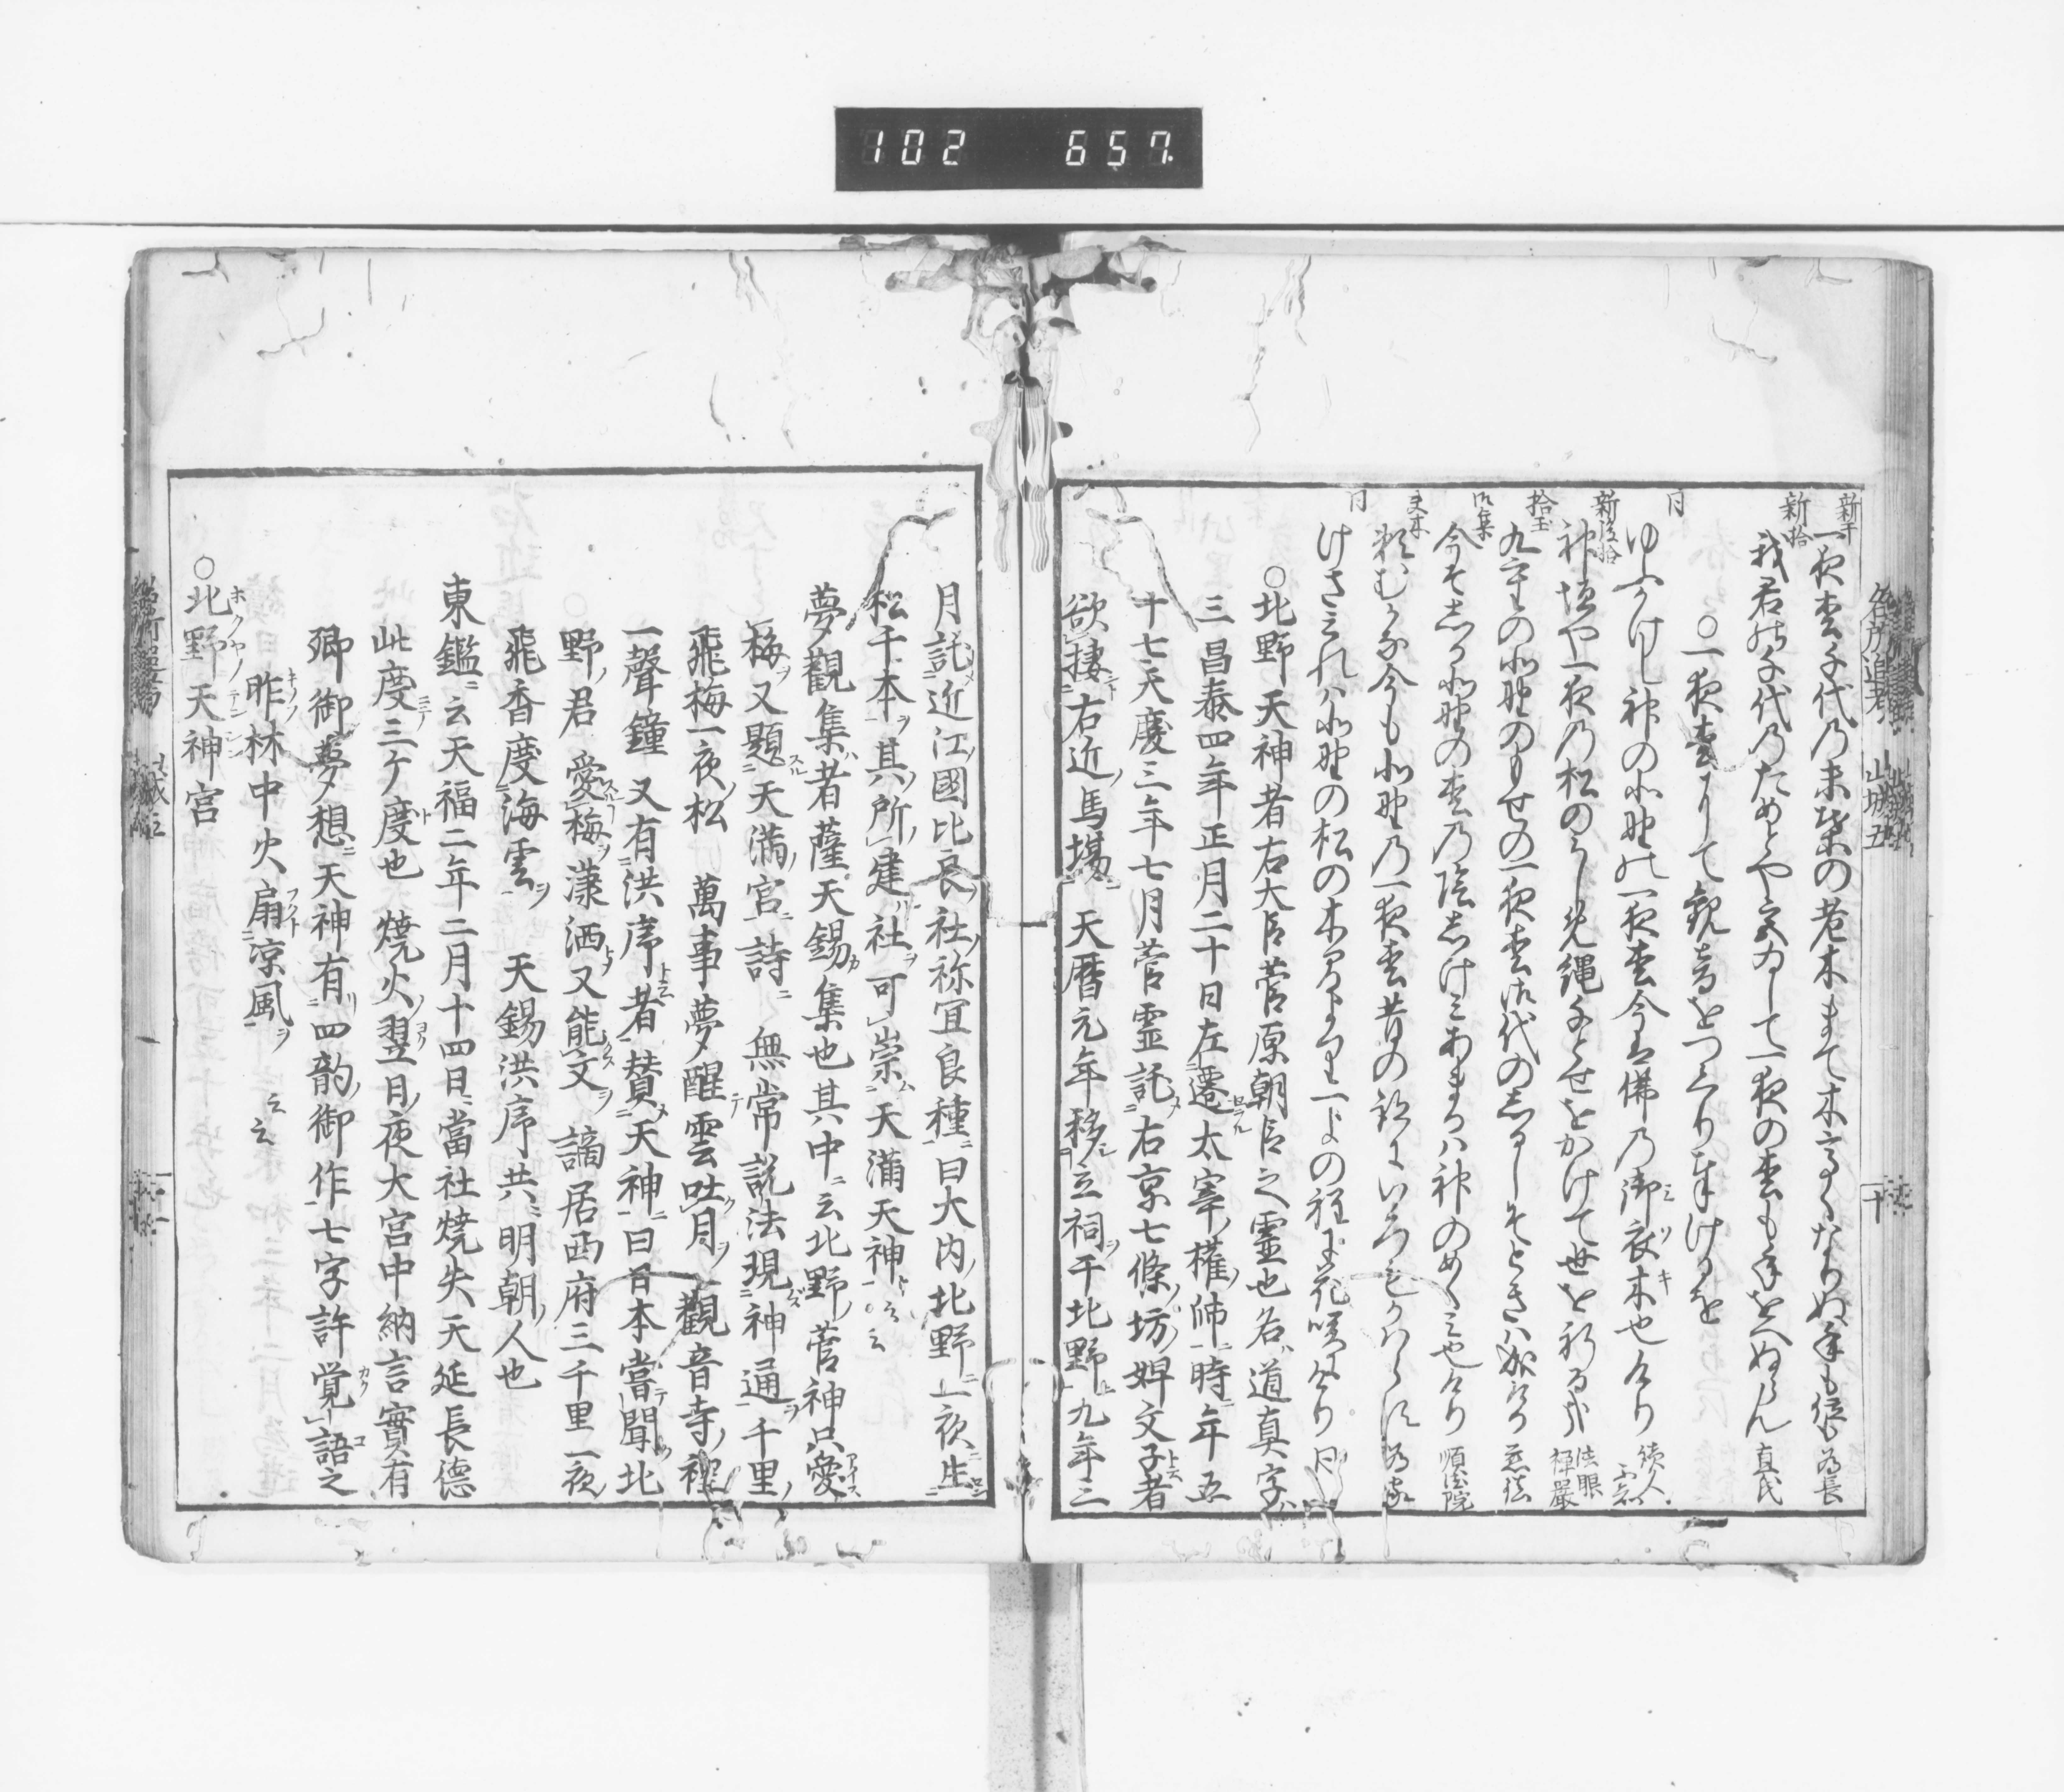 102 657
名所追考 山城五 十
新千 一夜松千代乃末葉の老木まて木高くなりぬ年も経 為長
新拾 我君の千代乃ためとや家ゐして一夜の松も年をへぬらん 直氏
○一夜松にて観音をつくり奉ける を
同 ゆふかけし神の北野の一夜松今は仏乃御衣木也けり 読人
新後拾 神垣や一夜乃松のうしめ縄千とせをかけて世を祈る 法眼禅厳
拾玉 九重の北野のおくせの一夜松 代の といはかり 慈鎮
御集 今そしる北野の松乃陰しけみあまるは神のめくみ也けり 順徳院
夫木 頼むかな今も北野乃一夜松昔の跡にいろもかはらす 為家
同 けさみれは北野の松の木高より一よの程に花咲にけり 同
○北野天神者右大臣菅原朝臣之霊也名道真字
三昌泰四年正月二十日左遷太宰權帥時年五
十七天慶三年七月菅霊託右京七條坊婢文子者
欲棲右近馬場 天暦元年移立祠于北野九年三
月託近江國比良社祢宜良種曰大内北野一夜生
松千本其所建社可崇天満天神云云
夢觀集者薩天錫集也其中云北野菅神只愛
梅又題天満宮詩 無常説法現神通千里
飛梅一夜松 萬事夢醒雲吐月觀音寺裡
一聲鐘 又有洪序者賛天神曰日本嘗聞北
野君 愛梅瀟洒又能文 謫居西府三千里一夜
飛香度海雲 天錫洪序共明朝人也
東鑑云天福二年二月十四日當社焼失天延長德
此度三ケ度也 焼火翌日夜大宮中納言實有
卿御夢想天神有四韵御作七字許覚語之
昨林中火扇凉風云云
○北野天神宮